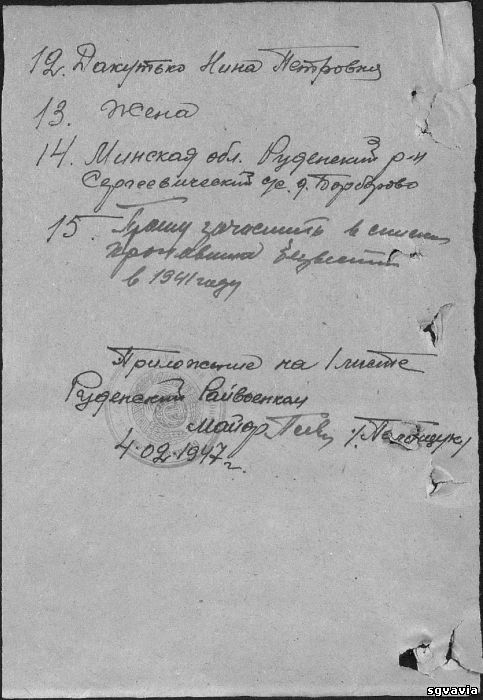 12. Дакутько Нина Петровна
13. Жена
14. Минская обл. Руденский р-н
Сергеевический с/с. д.
15. Прошу зачислить в списки
безвести
в 1941 году
Приложение на 1 листе
Руденский Райвоенком
Майор
4.02.1947 г.
sgvavia